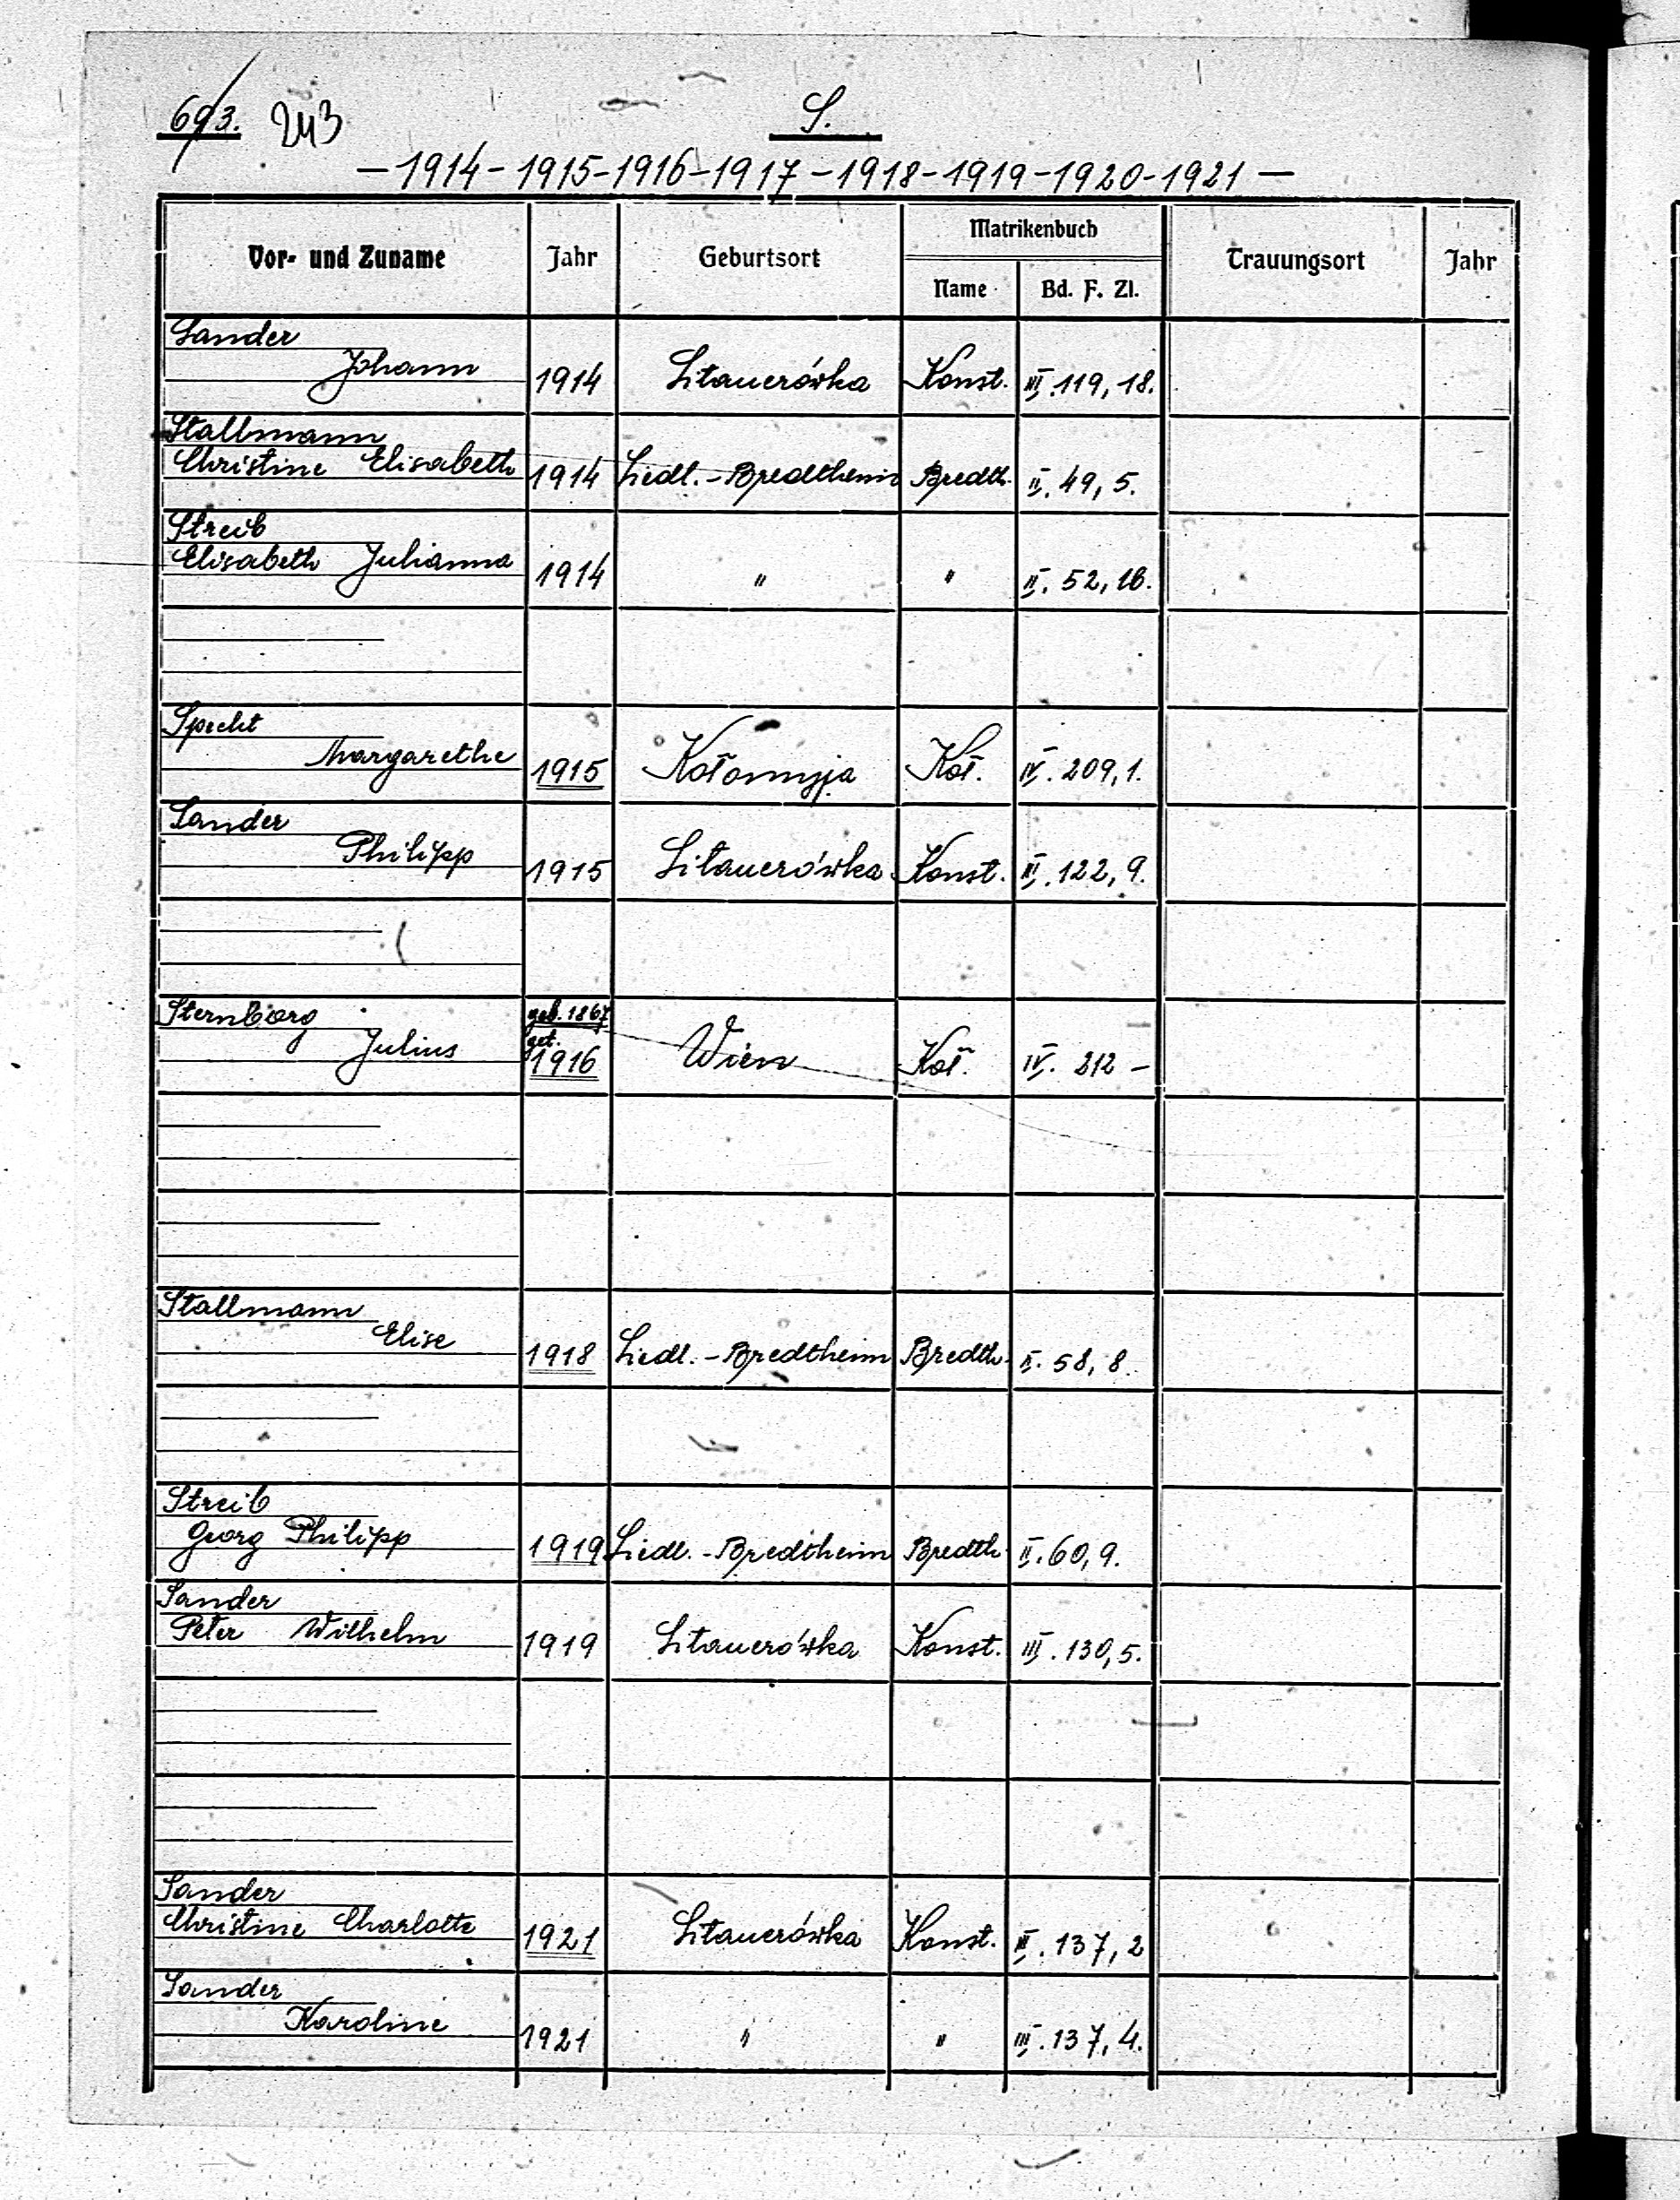 693. 243
S.
-1914-1915-1916-1917-1918-1919-1920-1921-
Vor- und Zuname Jahr Geburtsort Matrikenbuch Trauungsort Jahr
Name Bd. F. Zl.
Sander
Johann 1914 Litauerówka Konst. III. 119, 18.
Stallmann
Christine Elisabeth 1914 Siedl.-Bredtheim Bredth. II. 49, 5.
Streib
Elisabeth Julianna 1914 " " II. 52, 16.
Specht
Margarethe 1915 Kołomyja Koł. IV. 209, 1.
Sander
Philipp 1915 Litauerówka Konst. III. 122, 9.
Sternberg geb. 1867
Julius get. 1916 Wien Koł. IV. 212 -
Stallmann
Elise 1918 Siedl.-Bredtheim Bredth. II. 58, 8.
Streib
Georg Philipp 1919 Siedl.-Bredtheim Bredth. II. 60, 9.
Sander
Peter Wilhelm 1919 Litauerówka Konst. III. 130, 5.
Sander
Christine Charlotte 1921 Litauerówka Konst. III. 137, 2
Sander
Karoline 1921 " " III. 137, 4.